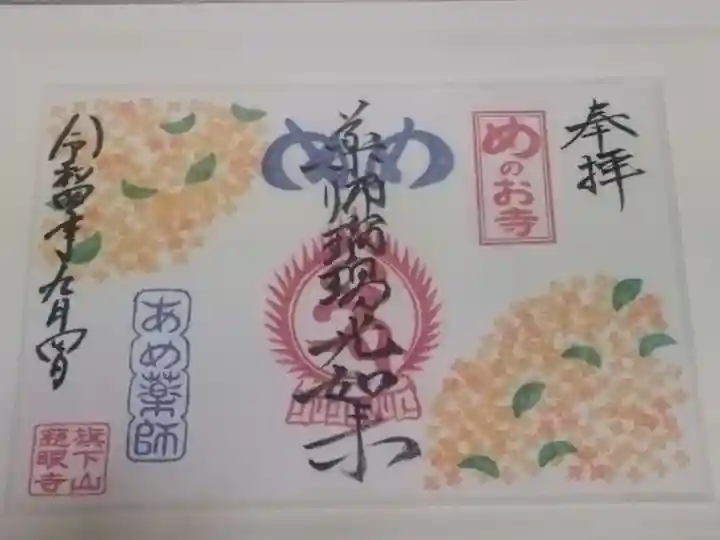 奉拝
めのお寺
めめ
薬師瑠璃光如来
あめ薬師
令和四年九月四日
旗下山
鏡眼寺